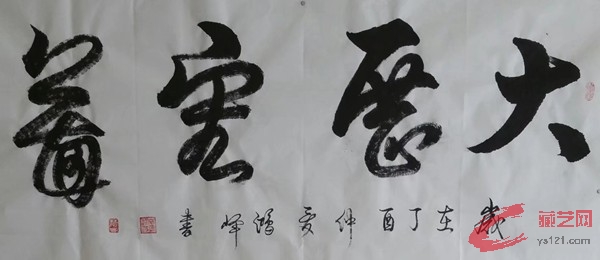 大展宏圖
歲在丁酉仲夏峰書
藏艺网
ys121.com